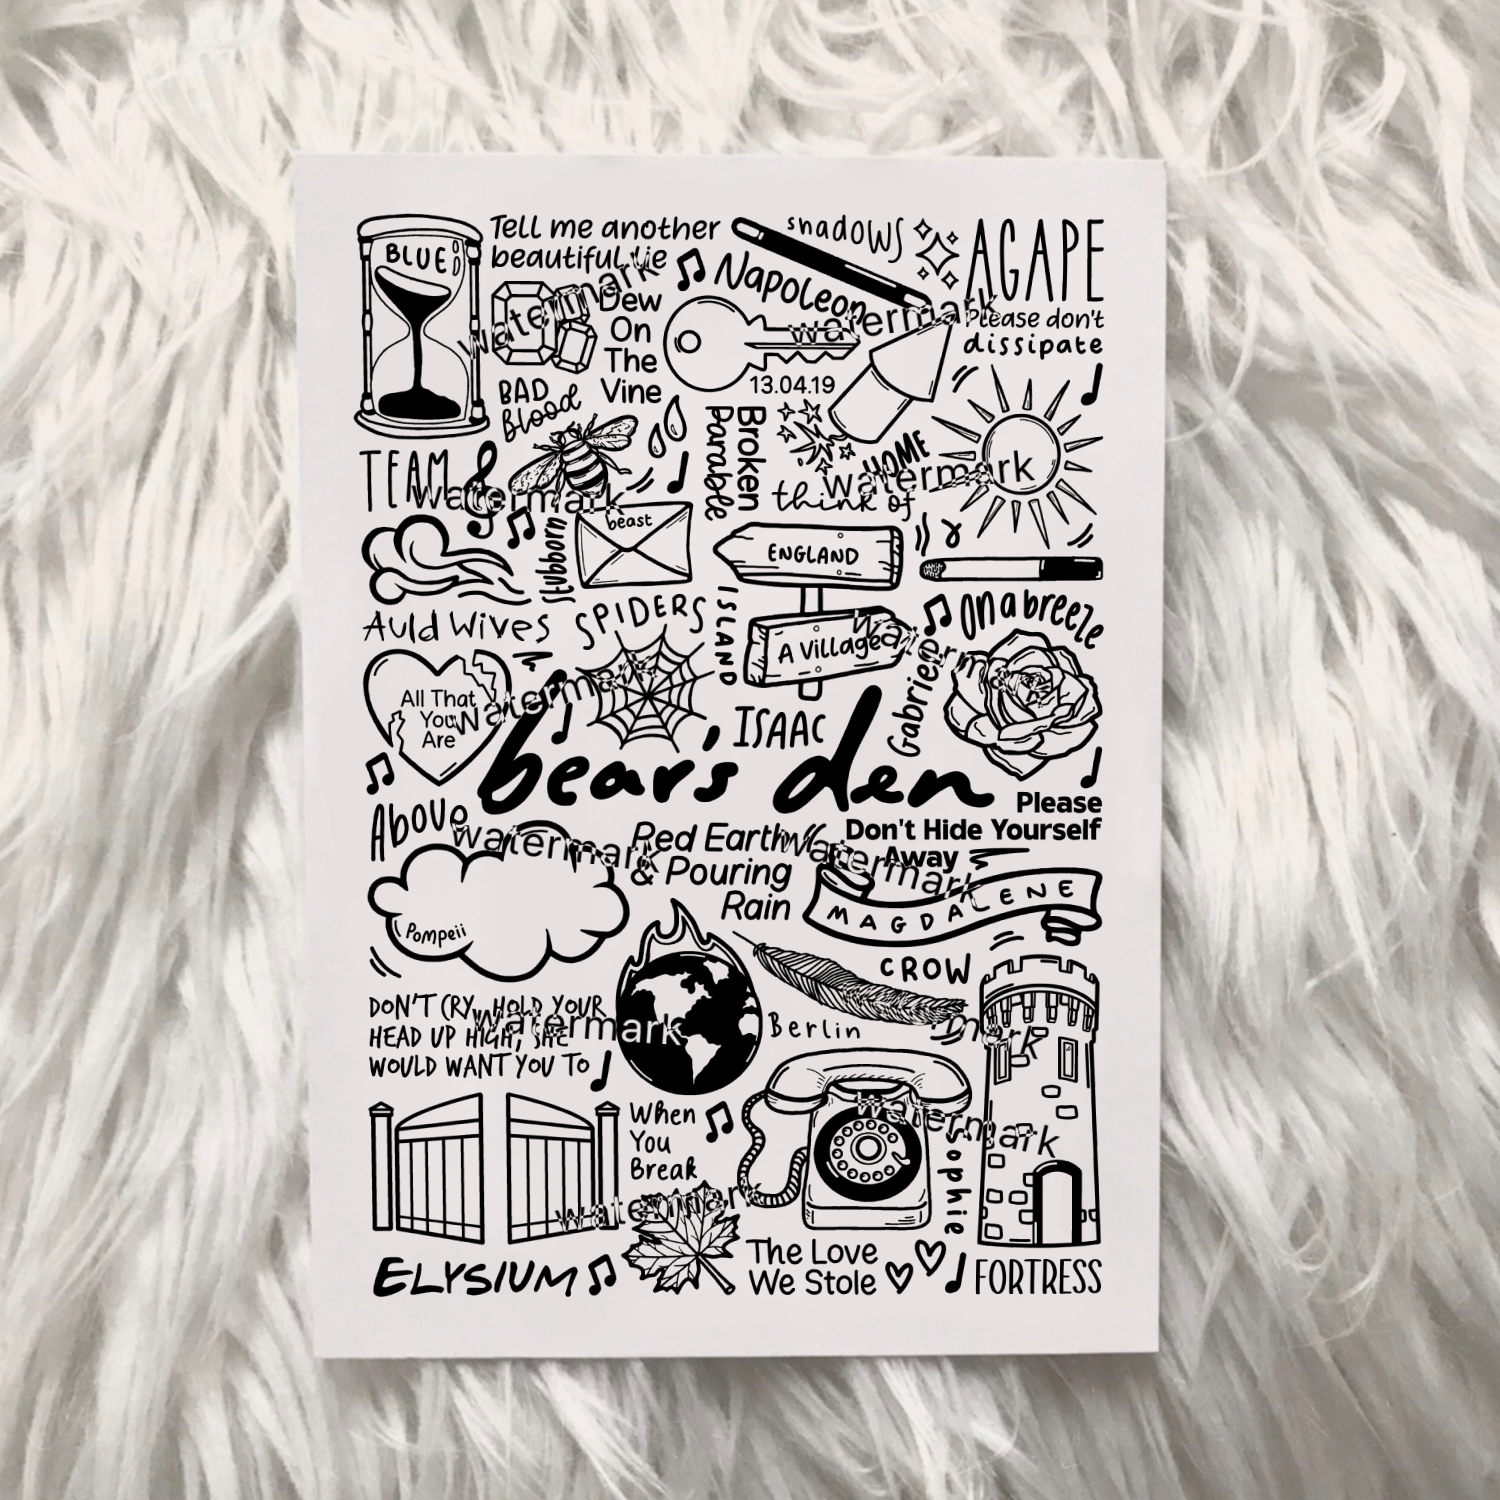 BLUE
Tell me another
beautiful lie
shadows
AGAPE
Napoleon
Dew
On
The
Vine
Please don't
dissipate
13.04.19
BAD
Blood
Broken
Parable
HOME
think of
TEAM
beast
Stubborn
ENGLAND
Auld Wives
SPIDERS
ISLAND
A Village
On a breeze
All That
You
Are
ISAAC
Gabriel
bear's den
Above
Please
Don't Hide Yourself
Away
Red Earth
& Pouring
Rain
MAGDALENE
Pompeii
CROW
DON'T CRY, HOLD YOUR
HEAD UP HIGH, SHE
WOULD WANT YOU TO
Berlin
When
You
Break
Sophie
ELYSIUM
The Love
We Stole
FORTRESS
watermark
watermark
watermark
watermark
watermark
watermark
watermark
watermark
watermark
mark
watermark
watermark